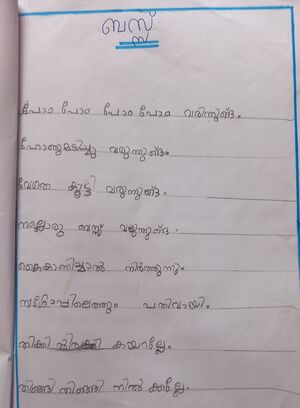 ബസ്സ്
പോം പോം പോം പോം വരിന്നുണ്ട.
ഹോണുമടിച്ചു വരുന്നുണ്ടം.
വേഗത കൂട്ടി വരുന്നുണ്ട.
നല്ലൊരു ബസ്സു വരുന്നുണ്ട.
കൈകാണിച്ചാൽ നിർത്തുന്നും.
സ്റ്റോപ്പിലെത്തും പതിവായി.
തിക്കി തിരക്കി കയറല്ലേ.
തിങ്ങി തിങ്ങി നിൽ ക്കല്ലേ.